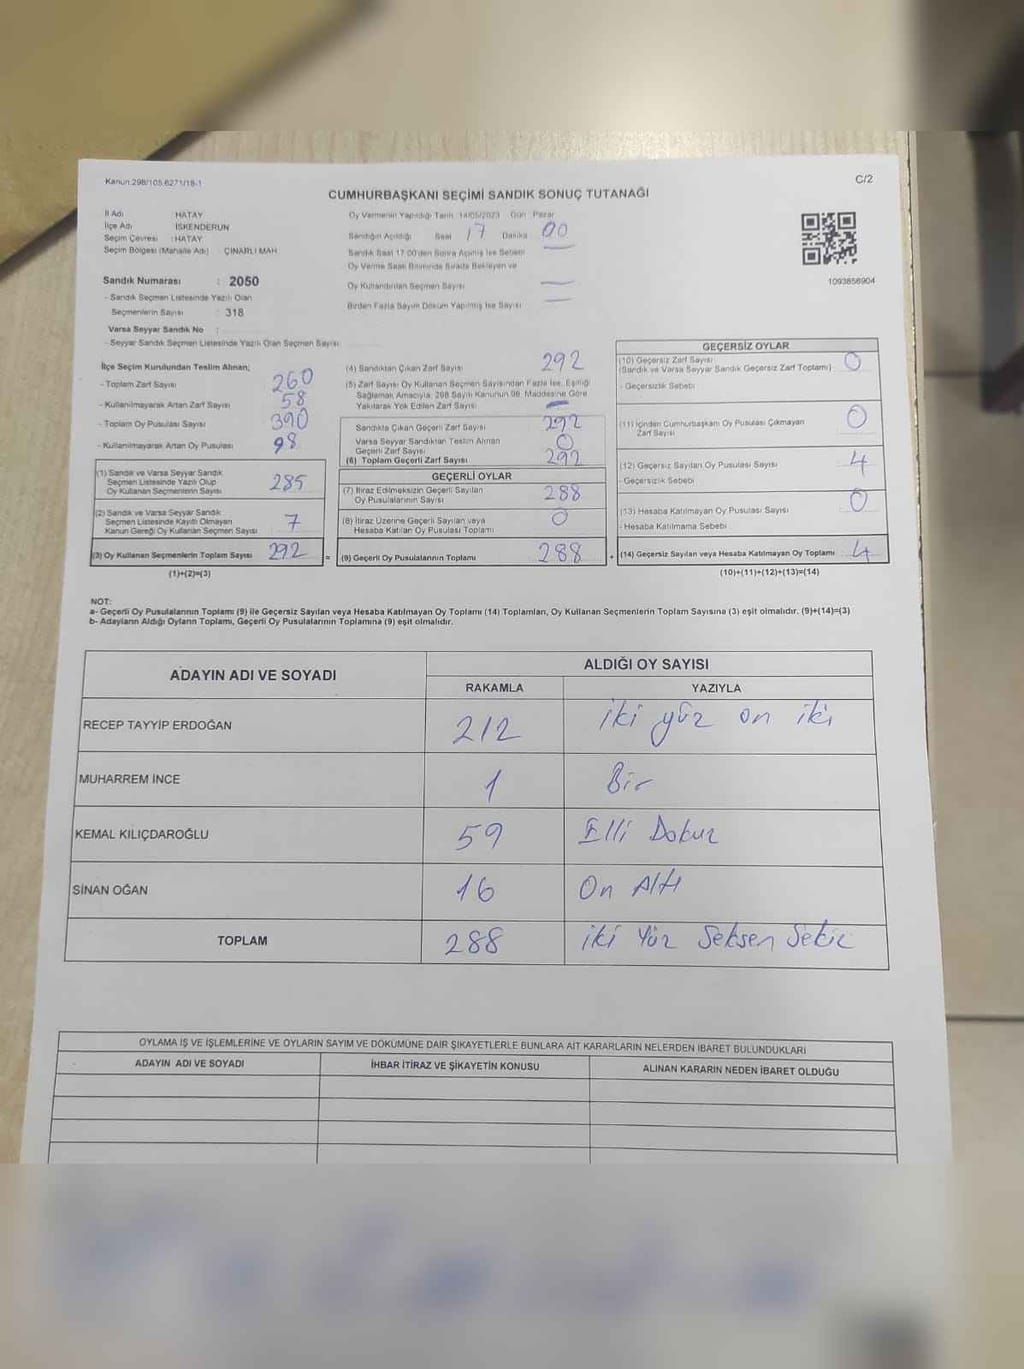 Kanun.298/105.6271/18-1
C/2
CUMHURBAŞKANI SEÇİMİ SANDIK SONUÇ TUTANAĞI
İl Adı : HATAY
İlçe Adı : İSKENDERUN
Seçim Çevresi : HATAY
Seçim Bölgesi (Mahalle Adı) : ÇINARLI MAH
Sandık Numarası : 2050
- Sandık Seçmen Listesinde Yazılı Olan
Seçmenlerin Sayısı : 318
Varsa Seyyar Sandık No :
- Seyyar Sandık Seçmen Listesinde Yazılı Olan Seçmen Sayısı
Oy Vermenin Yapıldığı Tarih 14/05/2023 Gün Pazar
Sandığın Açıldığı Saat 17 Dakika 00
Sandık Saat 17:00'den Sonra Açılmış İse Sebebi
Oy Verme Saati Bitiminde Sırada Bekleyen ve
Oy Kullandırılan Seçmen Sayısı
Birden Fazla Sayım Döküm Yapılmış İse Sayısı
1093856904
İlçe Seçim Kurulundan Teslim Alınan;
- Toplam Zarf Sayısı 260
- Kullanılmayarak Artan Zarf Sayısı 58
- Toplam Oy Pusulası Sayısı 390
- Kullanılmayarak Artan Oy Pusulası 98
(1) Sandık ve Varsa Seyyar Sandık
Seçmen Listesinde Yazılı Olup
Oy Kullanan Seçmenlerin Sayısı 285
(2) Sandık ve Varsa Seyyar Sandık
Seçmen Listesinde Kayıtlı Olmayan
Kanun Gereği Oy Kullanan Seçmen Sayısı 7
(3) Oy Kullanan Seçmenlerin Toplam Sayısı 292 =
(1)+(2)=(3)
(4) Sandıktan Çıkan Zarf Sayısı 292
(5) Zarf Sayısı Oy Kullanan Seçmen Sayısından Fazla İse, Eşitliği
Sağlamak Amacıyla, 298 Sayılı Kanunun 98. Maddesine Göre
Yakılarak Yok Edilen Zarf Sayısı
Sandıkta Çıkan Geçerli Zarf Sayısı 292
Varsa Seyyar Sandıktan Teslim Alınan
Geçerli Zarf Sayısı 0
(6) Toplam Geçerli Zarf Sayısı 292
GEÇERLİ OYLAR
(7) İtiraz Edilmeksizin Geçerli Sayılan
Oy Pusulalarının Sayısı 288
(8) İtiraz Üzerine Geçerli Sayılan veya
Hesaba Katılan Oy Pusulası Toplamı 0
(9) Geçerli Oy Pusulalarının Toplamı 288 +
GEÇERSİZ OYLAR
(10) Geçersiz Zarf Sayısı
(Sandık ve Varsa Seyyar Sandık Geçersiz Zarf Toplamı) 0
- Geçersizlik Sebebi
(11) İçinden Cumhurbaşkanı Oy Pusulası Çıkmayan
Zarf Sayısı 0
(12) Geçersiz Sayılan Oy Pusulası Sayısı 4
- Geçersizlik Sebebi
(13) Hesaba Katılmayan Oy Pusulası Sayısı 0
- Hesaba Katılmama Sebebi
(14) Geçersiz Sayılan veya Hesaba Katılmayan Oy Toplamı 4
(10)+(11)+(12)+(13)=(14)
NOT:
a- Geçerli Oy Pusulalarının Toplamı (9) ile Geçersiz Sayılan veya Hesaba Katılmayan Oy Toplamı (14) Toplamları, Oy Kullanan Seçmenlerin Toplam Sayısına (3) eşit olmalıdır. (9)+(14)=(3)
b- Adayların Aldığı Oyların Toplamı, Geçerli Oy Pusulalarının Toplamına (9) eşit olmalıdır.
ADAYIN ADI VE SOYADI
ALDIĞI OY SAYISI
RAKAMLA YAZIYLA
RECEP TAYYİP ERDOĞAN 212 iki yüz on iki
MUHARREM İNCE 1 Bir
KEMAL KILIÇDAROĞLU 59 Elli Dokuz
SİNAN OĞAN 16 On Altı
TOPLAM 288 iki Yüz Seksen Sekiz
OYLAMA İŞ VE İŞLEMLERİNE VE OYLARIN SAYIM VE DÖKÜMÜNE DAİR ŞİKAYETLERLE BUNLARA AİT KARARLARIN NELERDEN İBARET BULUNDUKLARI
ADAYIN ADI VE SOYADI İHBAR İTİRAZ VE ŞİKAYETİN KONUSU ALINAN KARARIN NEDEN İBARET OLDUĞU